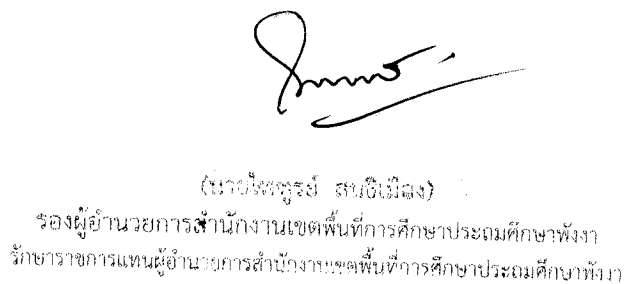 (นายไพฑูรย์
รองผู้อำนวยการสำนักงานเขตพื้นที่การศึกษาประถมศึกษาพังงา
รักษาราชการแทนผู้อำนวยการสำนักงานเขตพื้นที่การศึกษาประถมศึกษาพังงา